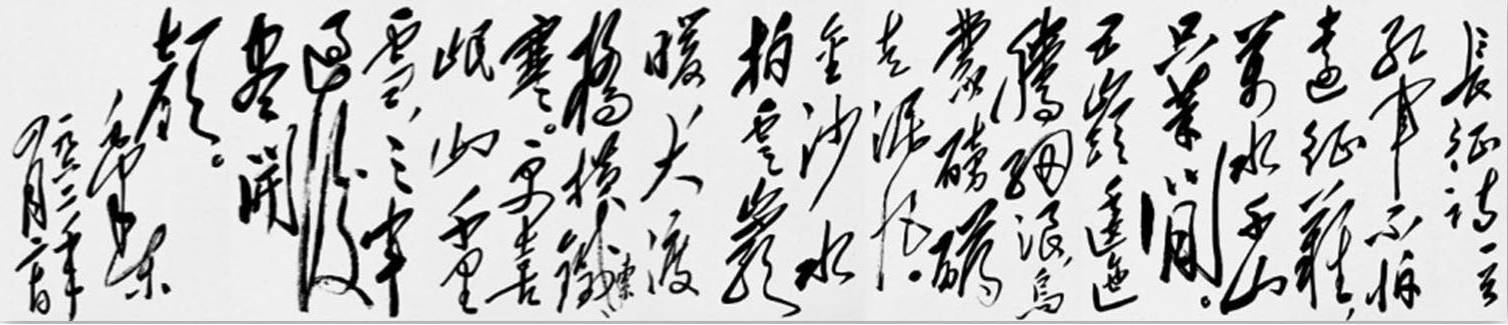 長征詩一首
紅軍不怕
遠征難，
萬水千山
只等閒。
五嶺逶迤
騰細浪，烏
蒙磅礴
走泥丸。
金沙水
拍雲崖
暖大渡
橋橫鐵索
寒。更喜
岷山千里
雪，三軍
過後
盡開
顏。
毛澤東
一九六二年